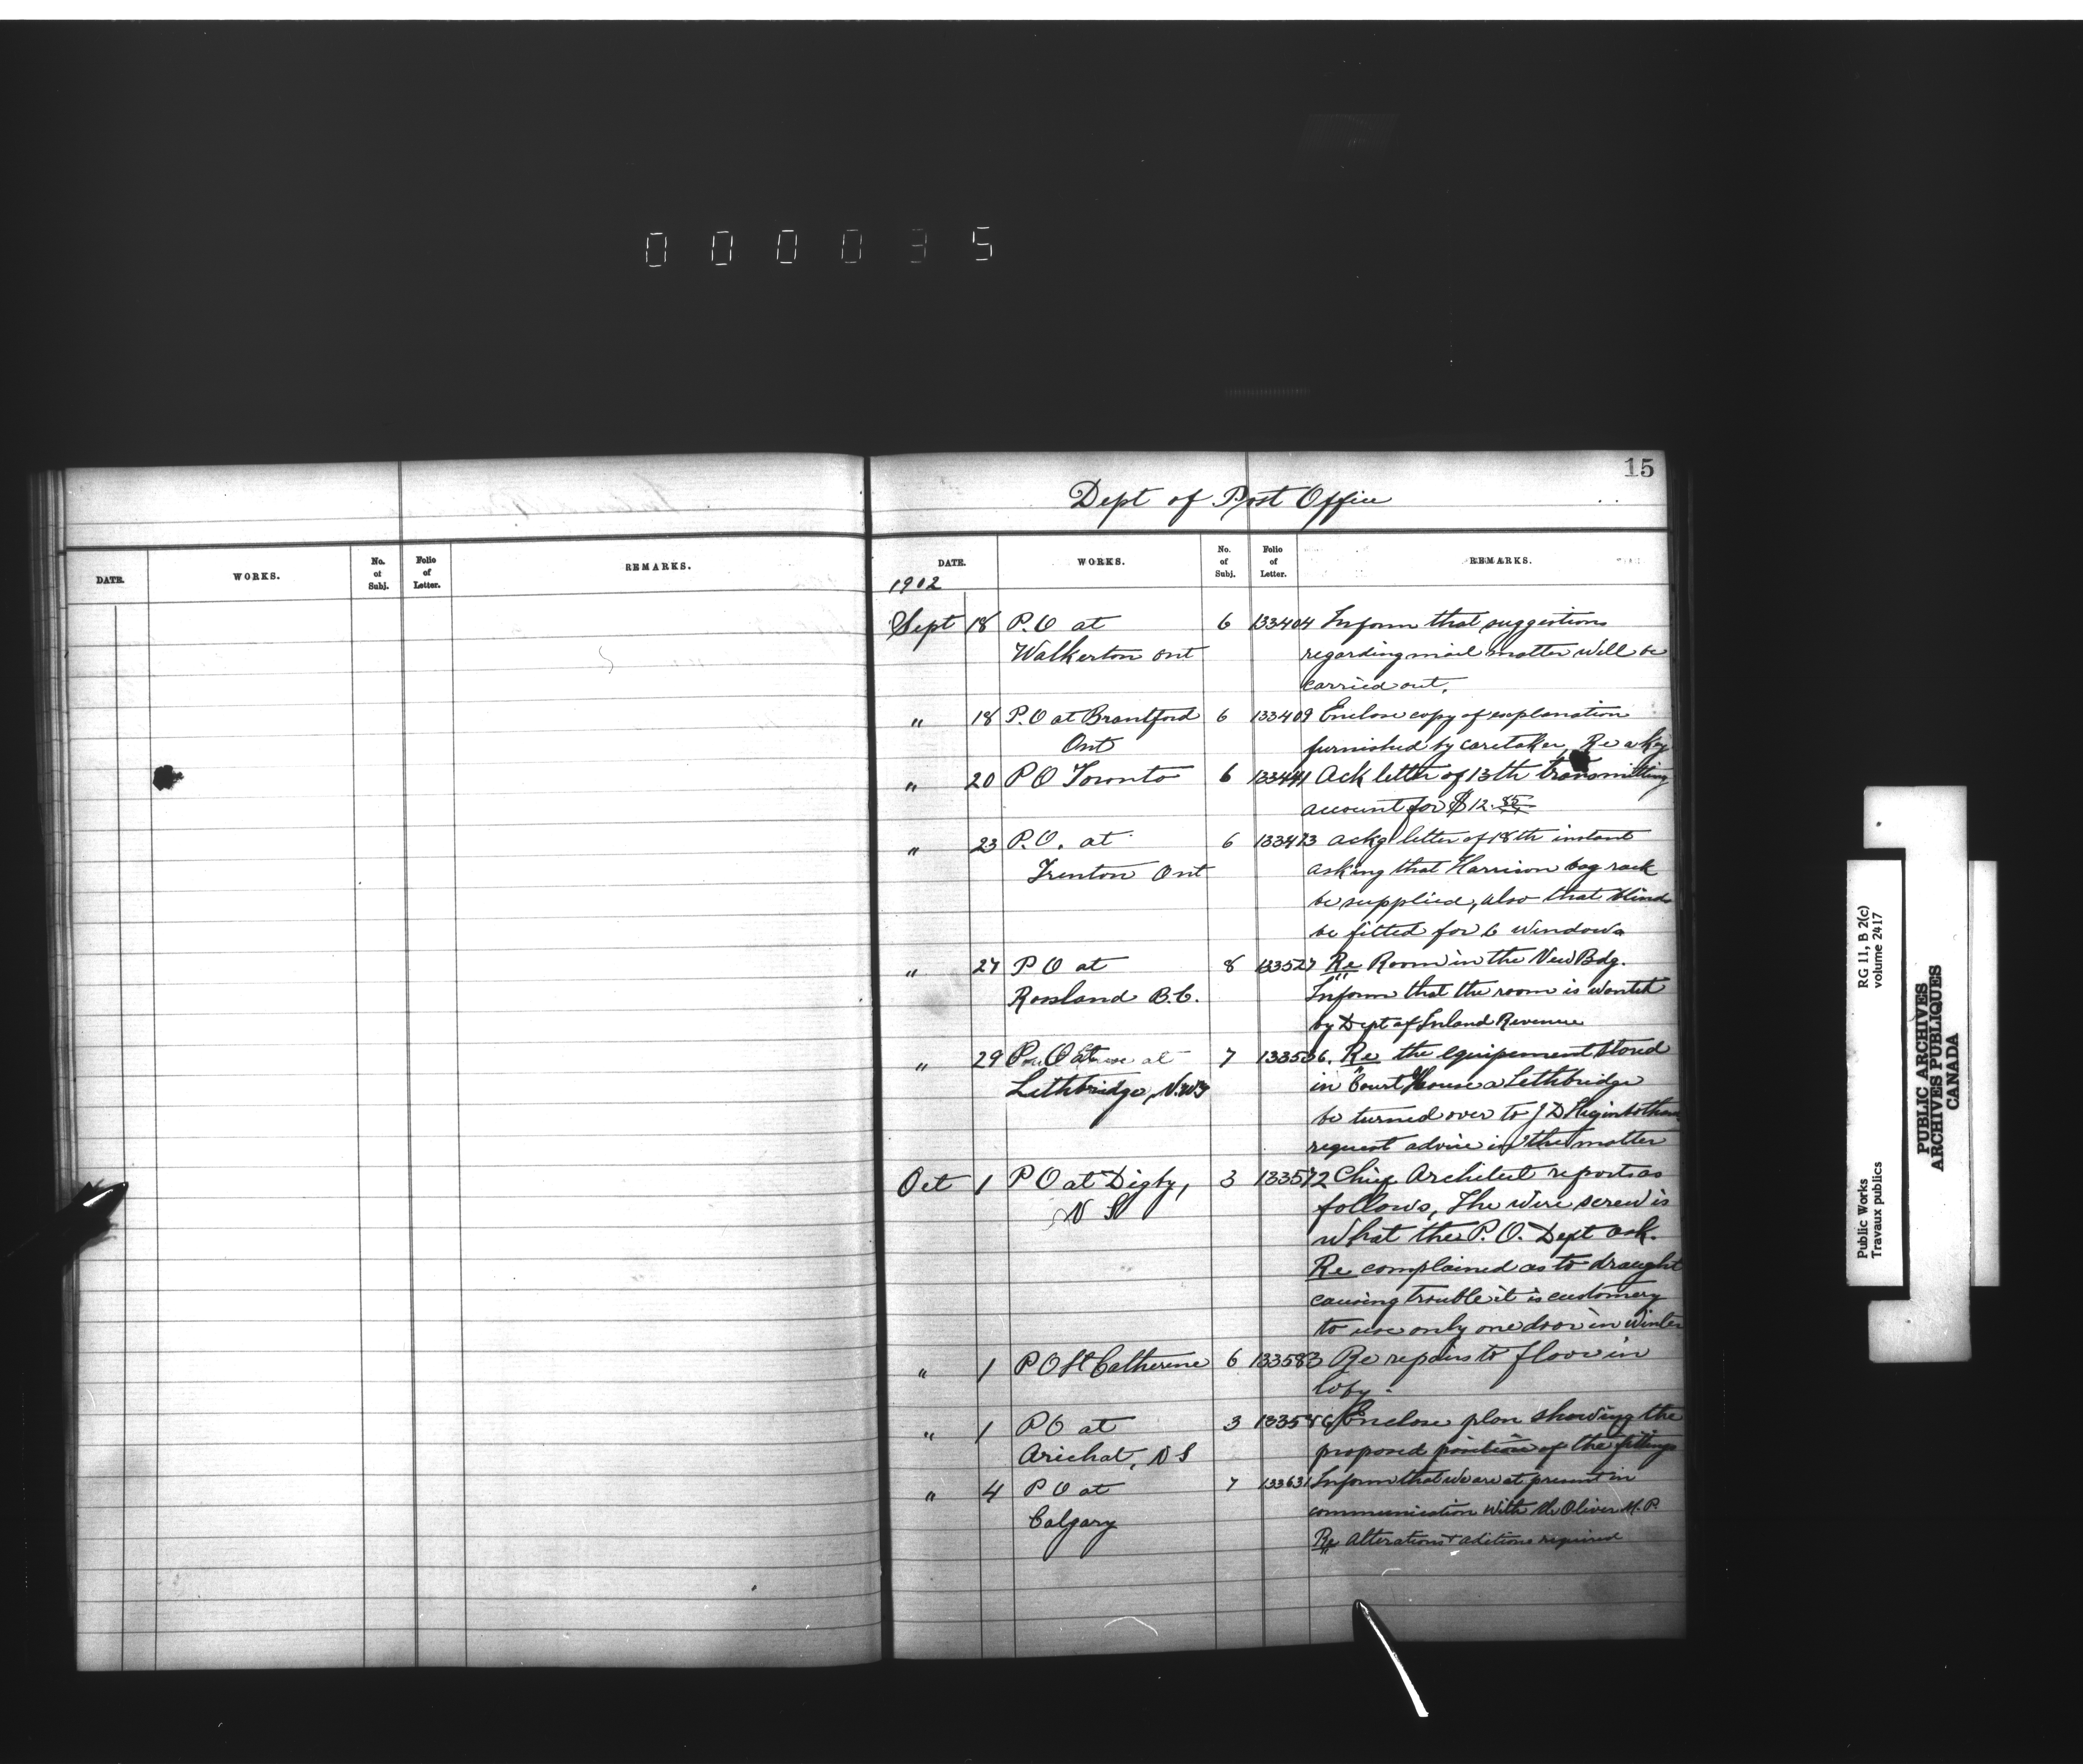 000035
DATE. WORKS. No. of Subj. Folio of Letter. REMARKS.
15
Dept of Post Office
DATE. WORKS. No. of Subj. Folio of Letter. REMARKS.
1902
Sept 18 P.O at 6 133404 Inform that suggestions
Walkerton Ont regarding mail matter will be
carried out.
" 18 P.O at Brantford 6 133409 Enclose copy of explanation
Ont furnished by caretaker, Re a key
" 20 P O Toronto 6 133441 Ack letter of 13th transmitting
account for $12.85
" 23 P.O. at 6 133473 ackg letter of 18th instant
Trenton Ont asking that Harrison bag rack
be supplied, also that blinds
be fitted for 6 windows
" 27 P O at 8 133527 Re Room in the New Bdg.
Rossland B.C. Inform that the room is wanted
by Dept of Inland Revenue
" 29 P O at 7 133536. Re the equipement stored
Lethbridge, N.W.T in Court House a Lethbridge
be turned over to J D Higinbotham
request advice in the matter
Oct 1 P O at Digby, 3 133572 Chief Architect reports as
N S follows, The wire screw is
what the P.O. Dept ask.
Re complained as to draught
causing trouble it is customery
to use only one door in winter
" 1 P O St Catherine 6 133583 Re repairs to floor in
loby.
" 1 P O at 3 133586 Enclose plan showing the
Arichat, N S proposed position of the fittings
" 4 P O at 7 133631 Inform that we are at present in
Calgary communication with Mr Oliver M.P.
Re Alterations & aditions required
RG 11, B 2(c)
volume 2417
Public Works
Travaux publics
PUBLIC ARCHIVES
ARCHIVES PUBLIQUES
CANADA